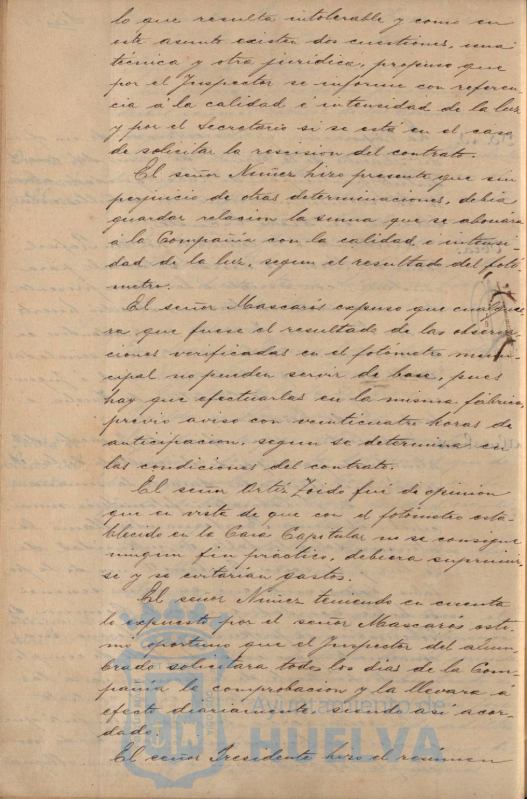 lo que resulta intolerable y como en
este asunto existen dos cuestiones, una
técnica y otra juridica, propuso que
por el Inspector se informe con referen-
cia á la calidad é intensidad de la luz
y por el Secretario si se está en el caso
de solicitar la rescision del contrato.
El señor Nuñez hizo presente que sin
perjuicio de otras determinaciones, debia
guardar relacion la suma que se abonára
á la Compañia con la calidad e intensi-
dad de la luz, segun el resultado del fotó-
metro.
El señor Mascarós expuso que cualquie-
ra que fuese el resultado de las observa-
ciones verificadas en el fotómetro muni-
cipal no pueden servir de base, pues
hay que efectuarlas en la misma fábrica,
previo aviso con veinticuatro horas de
anticipacion, segun se determina en
las condiciones del contrato.
El señor Ortiz Zoido fué de opinion
que en vista de que con el fotómetro esta-
blecido en la Casa Capitular no se consigue
ningun fin práctico, debiera suprimir-
se y se evitarian gastos.
El señor Nuñez teniendo en cuenta
lo expuesto por el señor Mascarós esti-
mó oportuno que el Inspector del alum-
brado solicitara todos los dias de la Com-
pañia la comprobacion y la llevara á
efecto diariamente, siendo así acor-
dado.
El señor Presidente hizo el resúmen
Ayuntamiento de
HUELVA